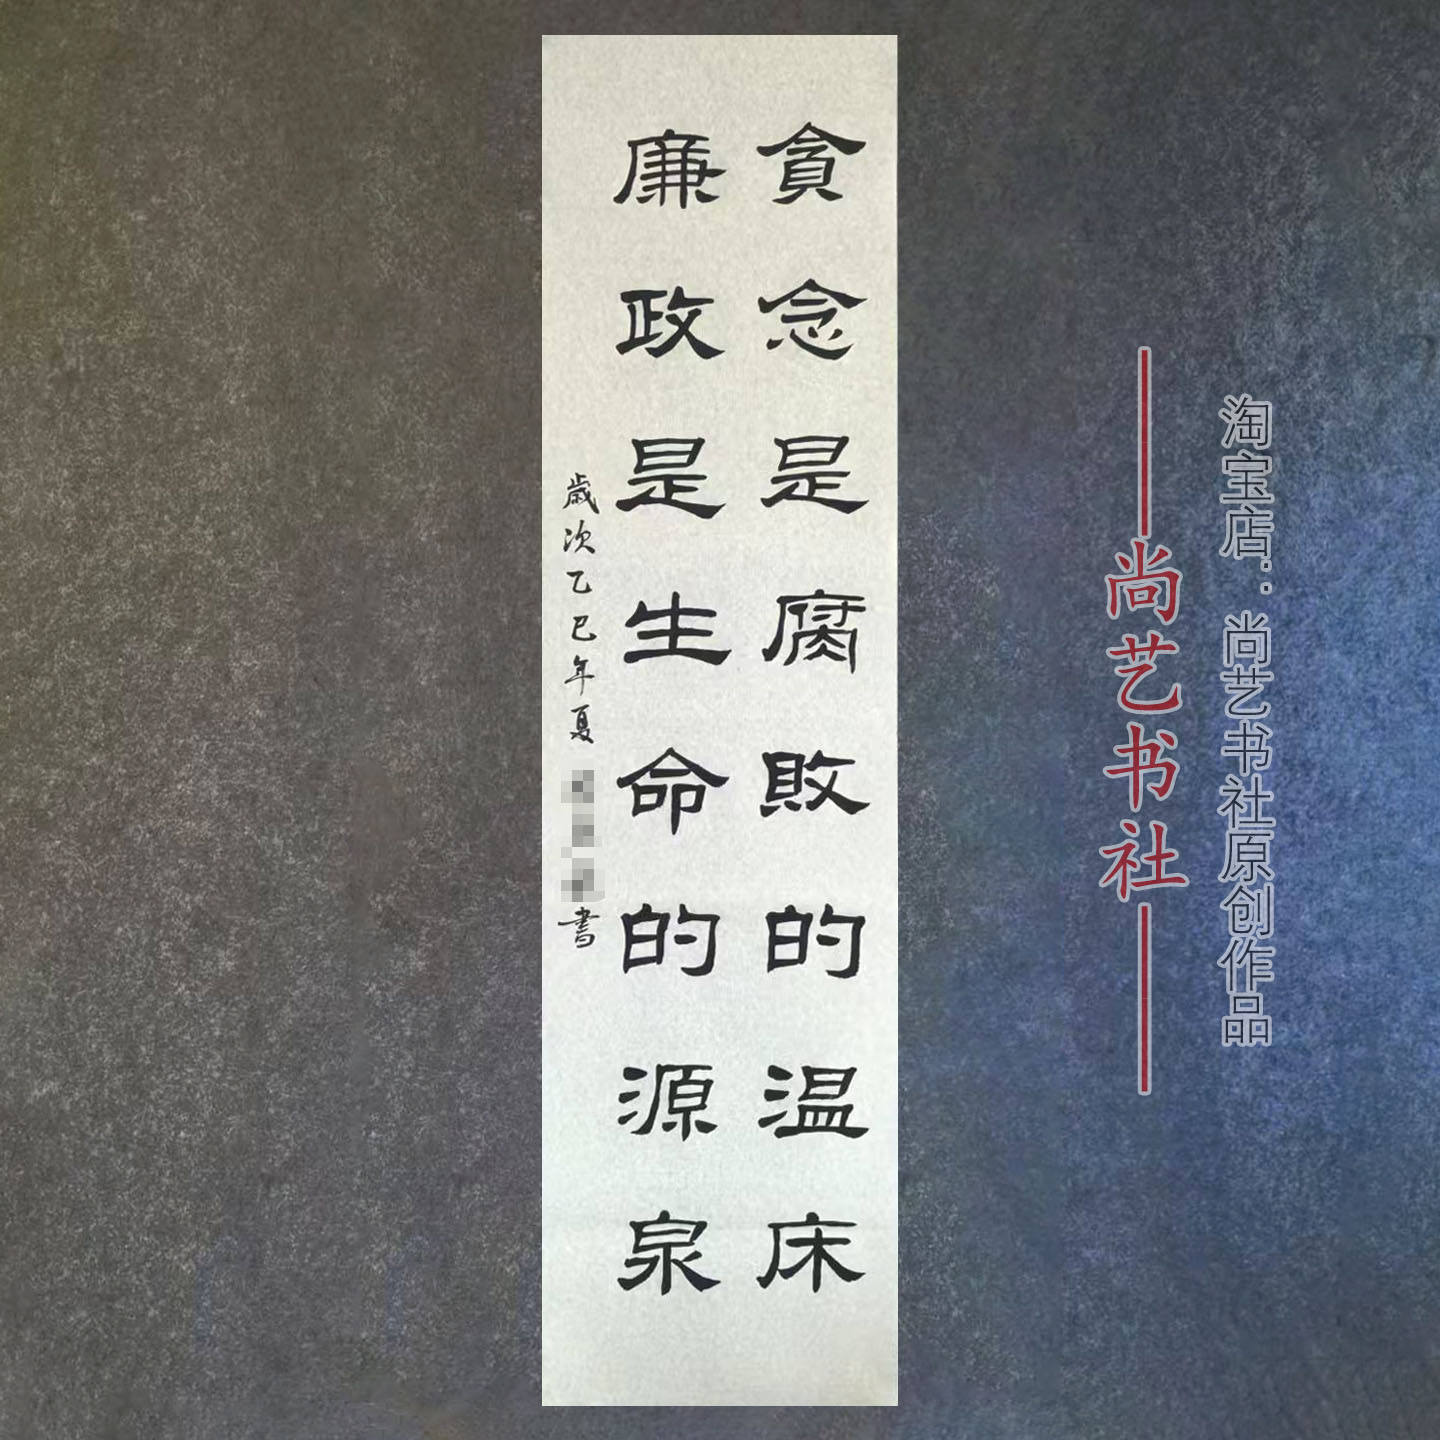 貪念是腐敗的温床
廉政是生命的源泉
歳次乙巳年夏
書
——尚艺书社——
淘宝店：尚艺书社原创作品